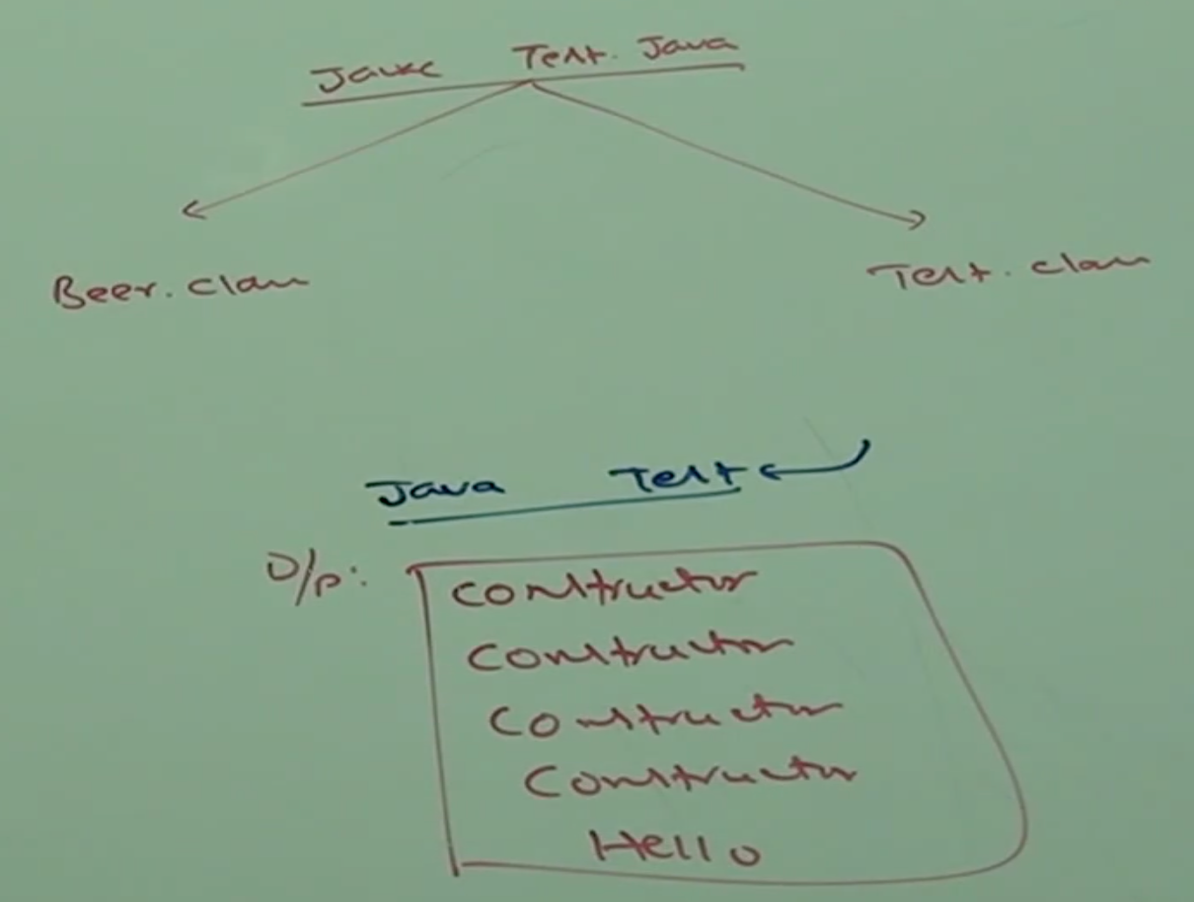 Javac Test.Java
Beer.class
Test.class
Java Test
O/P:
Constructor
Constructor
Constructor
Constructor
Hello